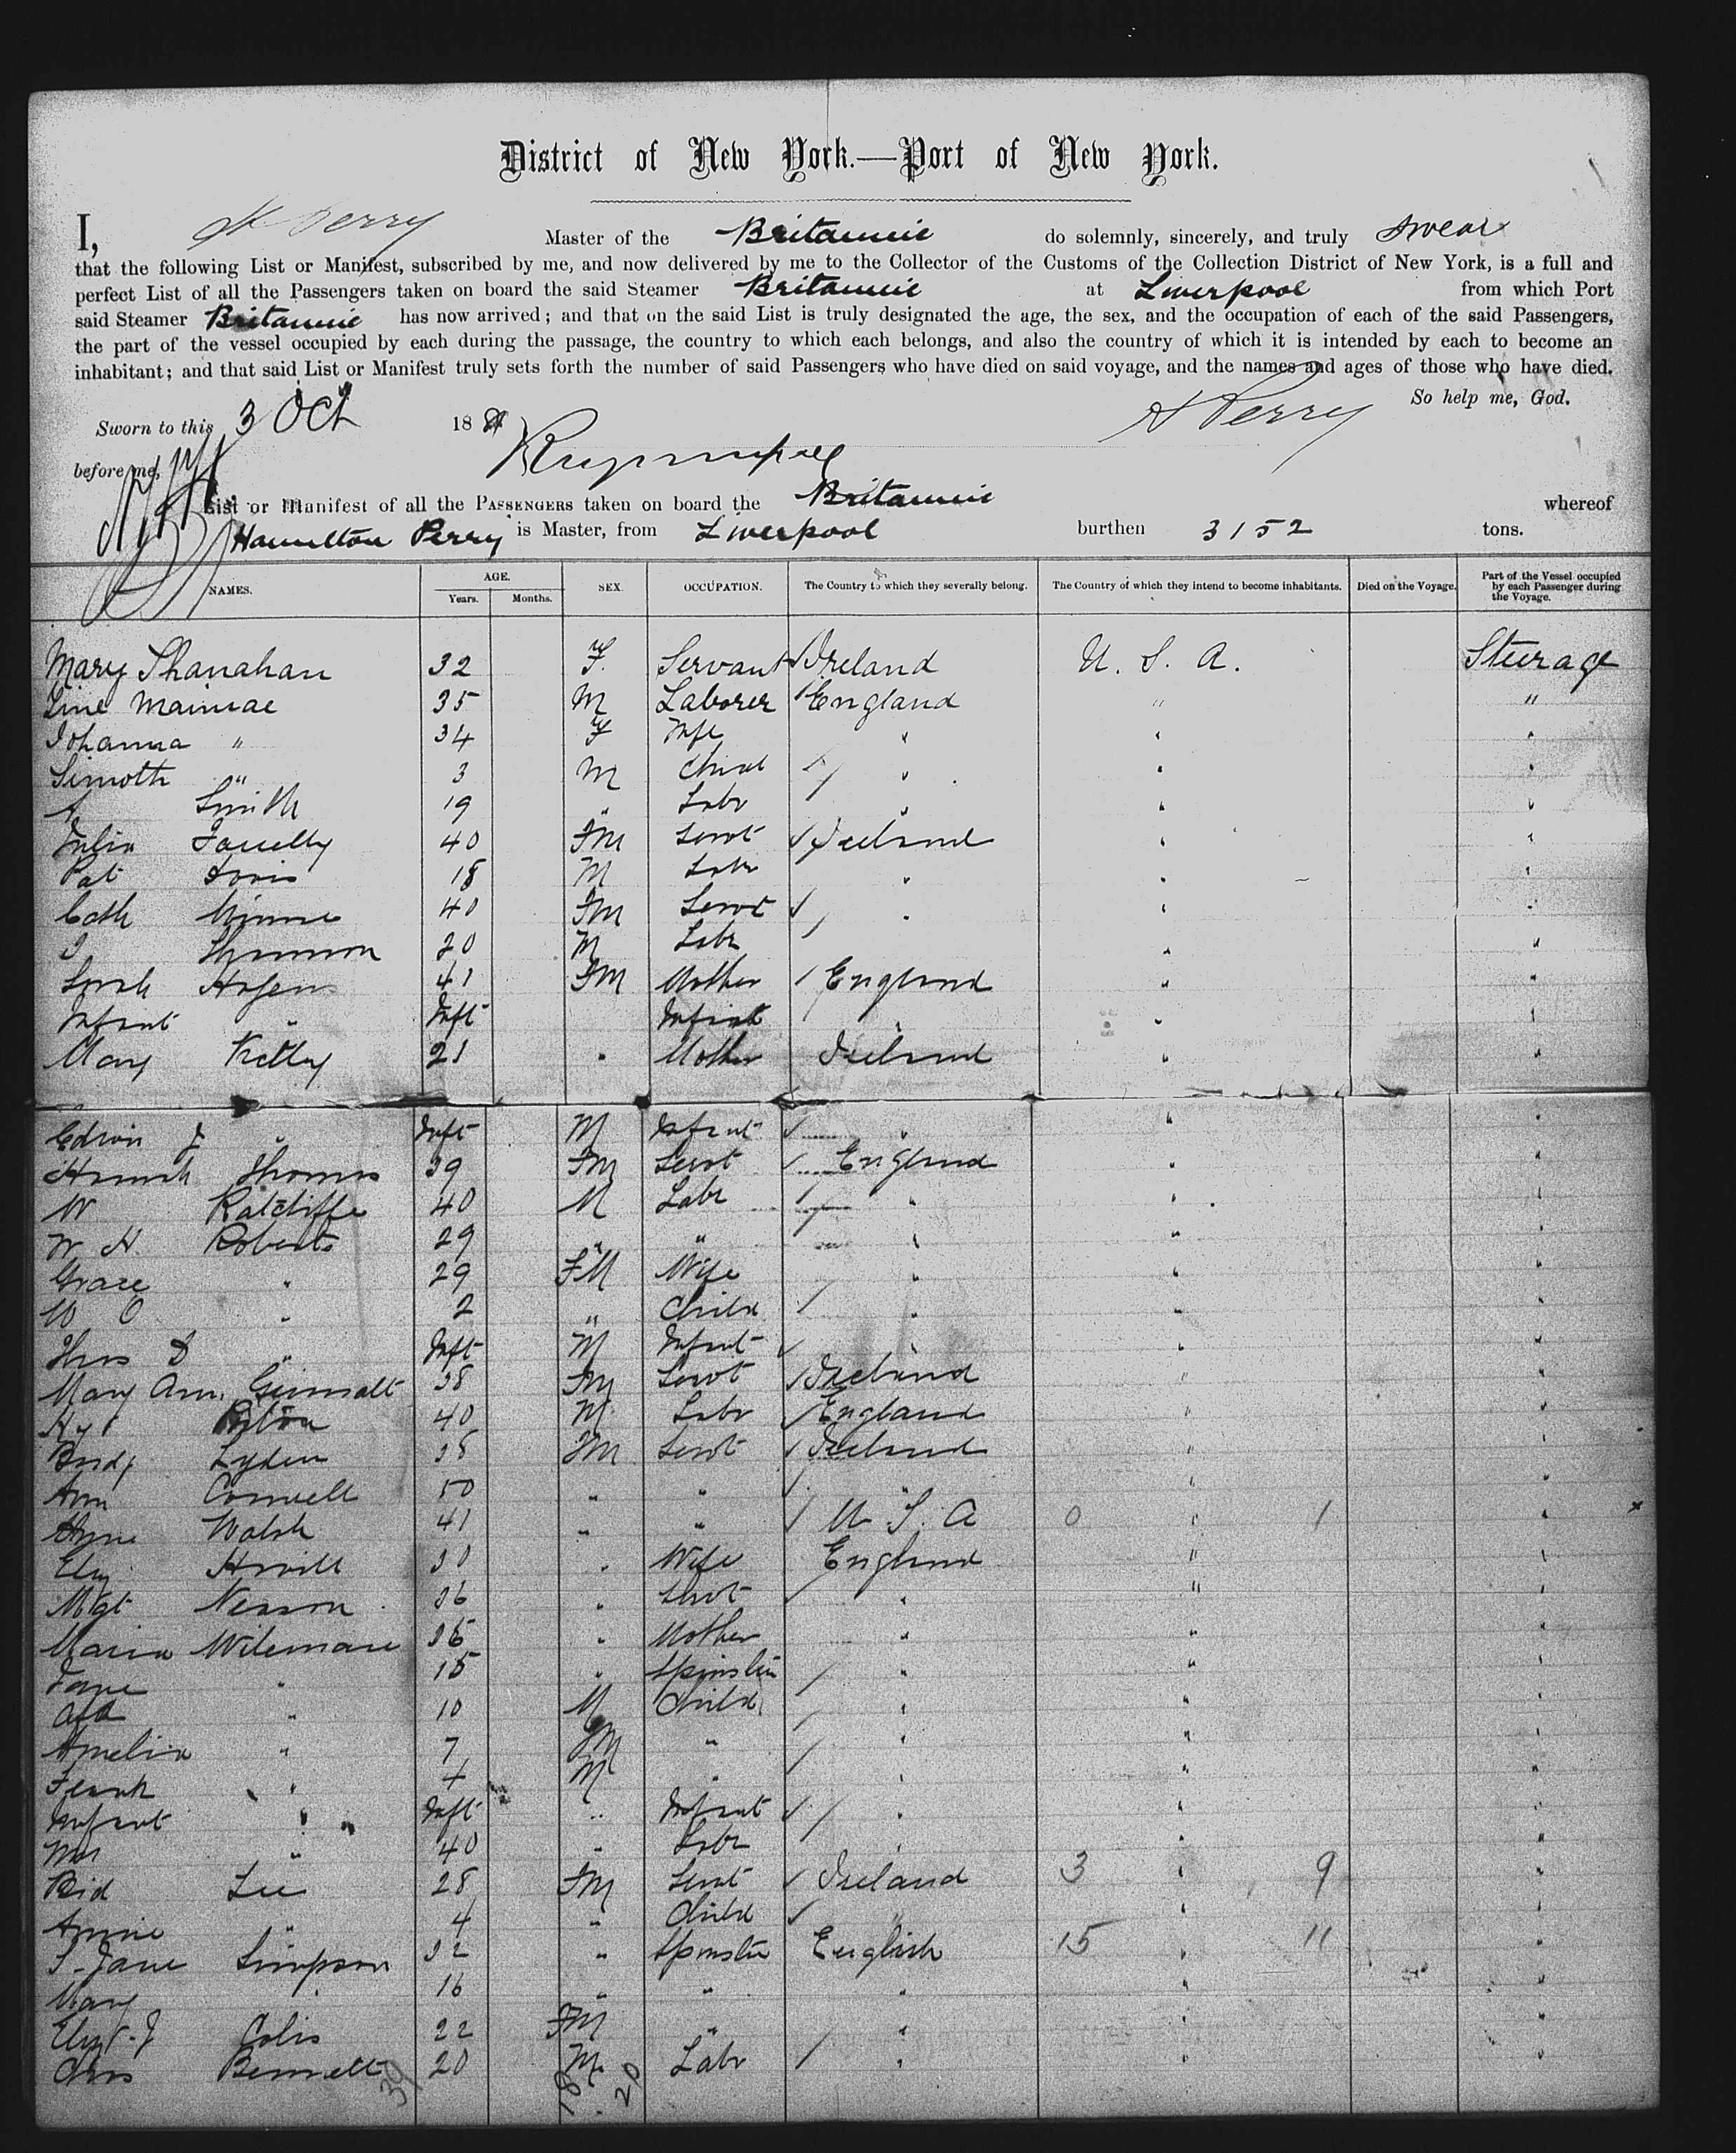 District of New York.—Port of New York.
I, H Perry Master of the Britannic do solemnly, sincerely, and truly swear
that the following List or Manifest, subscribed by me, and now delivered by me to the Collector of the Customs of the Collection District of New York, is a full and
perfect List of all the Passengers taken on board the said Steamer Britannic at Liverpool from which Port
said Steamer Britannic has now arrived; and that on the said List is truly designated the age, the sex, and the occupation of each of the said Passengers,
the part of the vessel occupied by each during the passage, the country to which each belongs, and also the country of which it is intended by each to become an
inhabitant; and that said List or Manifest truly sets forth the number of said Passengers who have died on said voyage, and the names and ages of those who have died.
So help me, God.
Sworn to this 3 Oct 188 H Perry
before me,
List or Manifest of all the PASSENGERS taken on board the Britannic whereof
Hamilton Perry is Master, from Liverpool burthen 3152 tons.
NAMES. AGE. Years. Months. SEX. OCCUPATION. The Country to which they severally belong. The Country of which they intend to become inhabitants. Died on the Voyage. Part of the Vessel occupied by each Passenger during the Voyage.
Mary Shanahan 32 F. Servant Ireland U. S. A. Steerage
35 M Laborer England " "
Johanna " 34 F Wife " " "
" 3 M Child " " "
Smith 19 " Labr " " "
Julia 40 FM Servt Ireland " "
Pat 18 M Labr " " "
Cath 40 FM Servt " " "
Shannon 20 M Labr " " "
Sarah 41 FM Mother England " "
Infant " Inft Infant " " "
Mary Kelly 21 " Mother Ireland " "
Edwin J " Inft M Infant " " "
Hannah Thomas 39 FM Servt England " "
W Ratcliffe 40 M Labr " " "
W. H. Roberts 29 " " " " "
Grace " 29 FM Wife " " "
W O " 2 " Child " " "
Thos D " Inft M Infant " " "
Mary Ann 38 FM Servt Ireland " "
Hy 40 M Labr England " "
Bridg Lyden 38 FM Servt Ireland " "
Ann Connell 50 " " " " "
Anne Walsh 41 " " U. S. A 0 " 1 "
Eliz 30 " Wife England " "
Mgt 36 " Servt " " "
Maria Wileman 36 " Mother " " "
Jane " 15 " Spinster " " "
" 10 M Child " " "
Amelia " 7 FM " " " "
Frank " 4 M " " " "
Infant " Inft " Infant " " "
Wm " 40 " Labr " " "
Bid Lee 28 FM Servt Ireland 3 " 9 "
Annie " 4 " Child " " "
S. Jane Simpson 32 " Spinster English 15 " 11 "
Mary " 16 " " " " "
Elizt. J Colis 22 FM " " " "
Chas Bennett 20 M Labr " " "
39 18 20